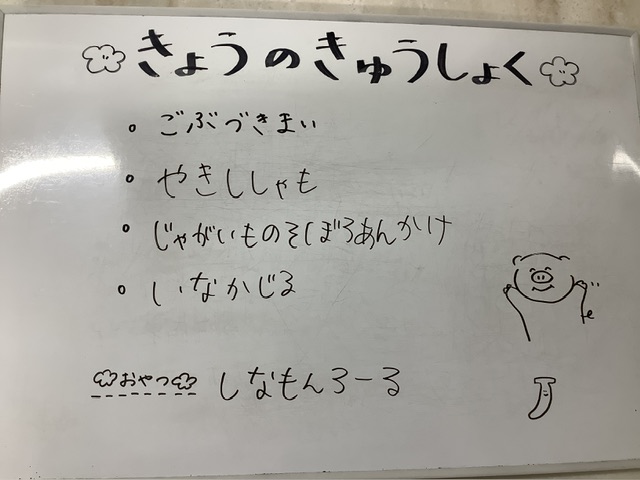 きょうのきゅうしょく
ごぶづきまい
やきししゃも
じゃがいものそぼろあんかけ
いなかじる
おやつ しなもんろーる